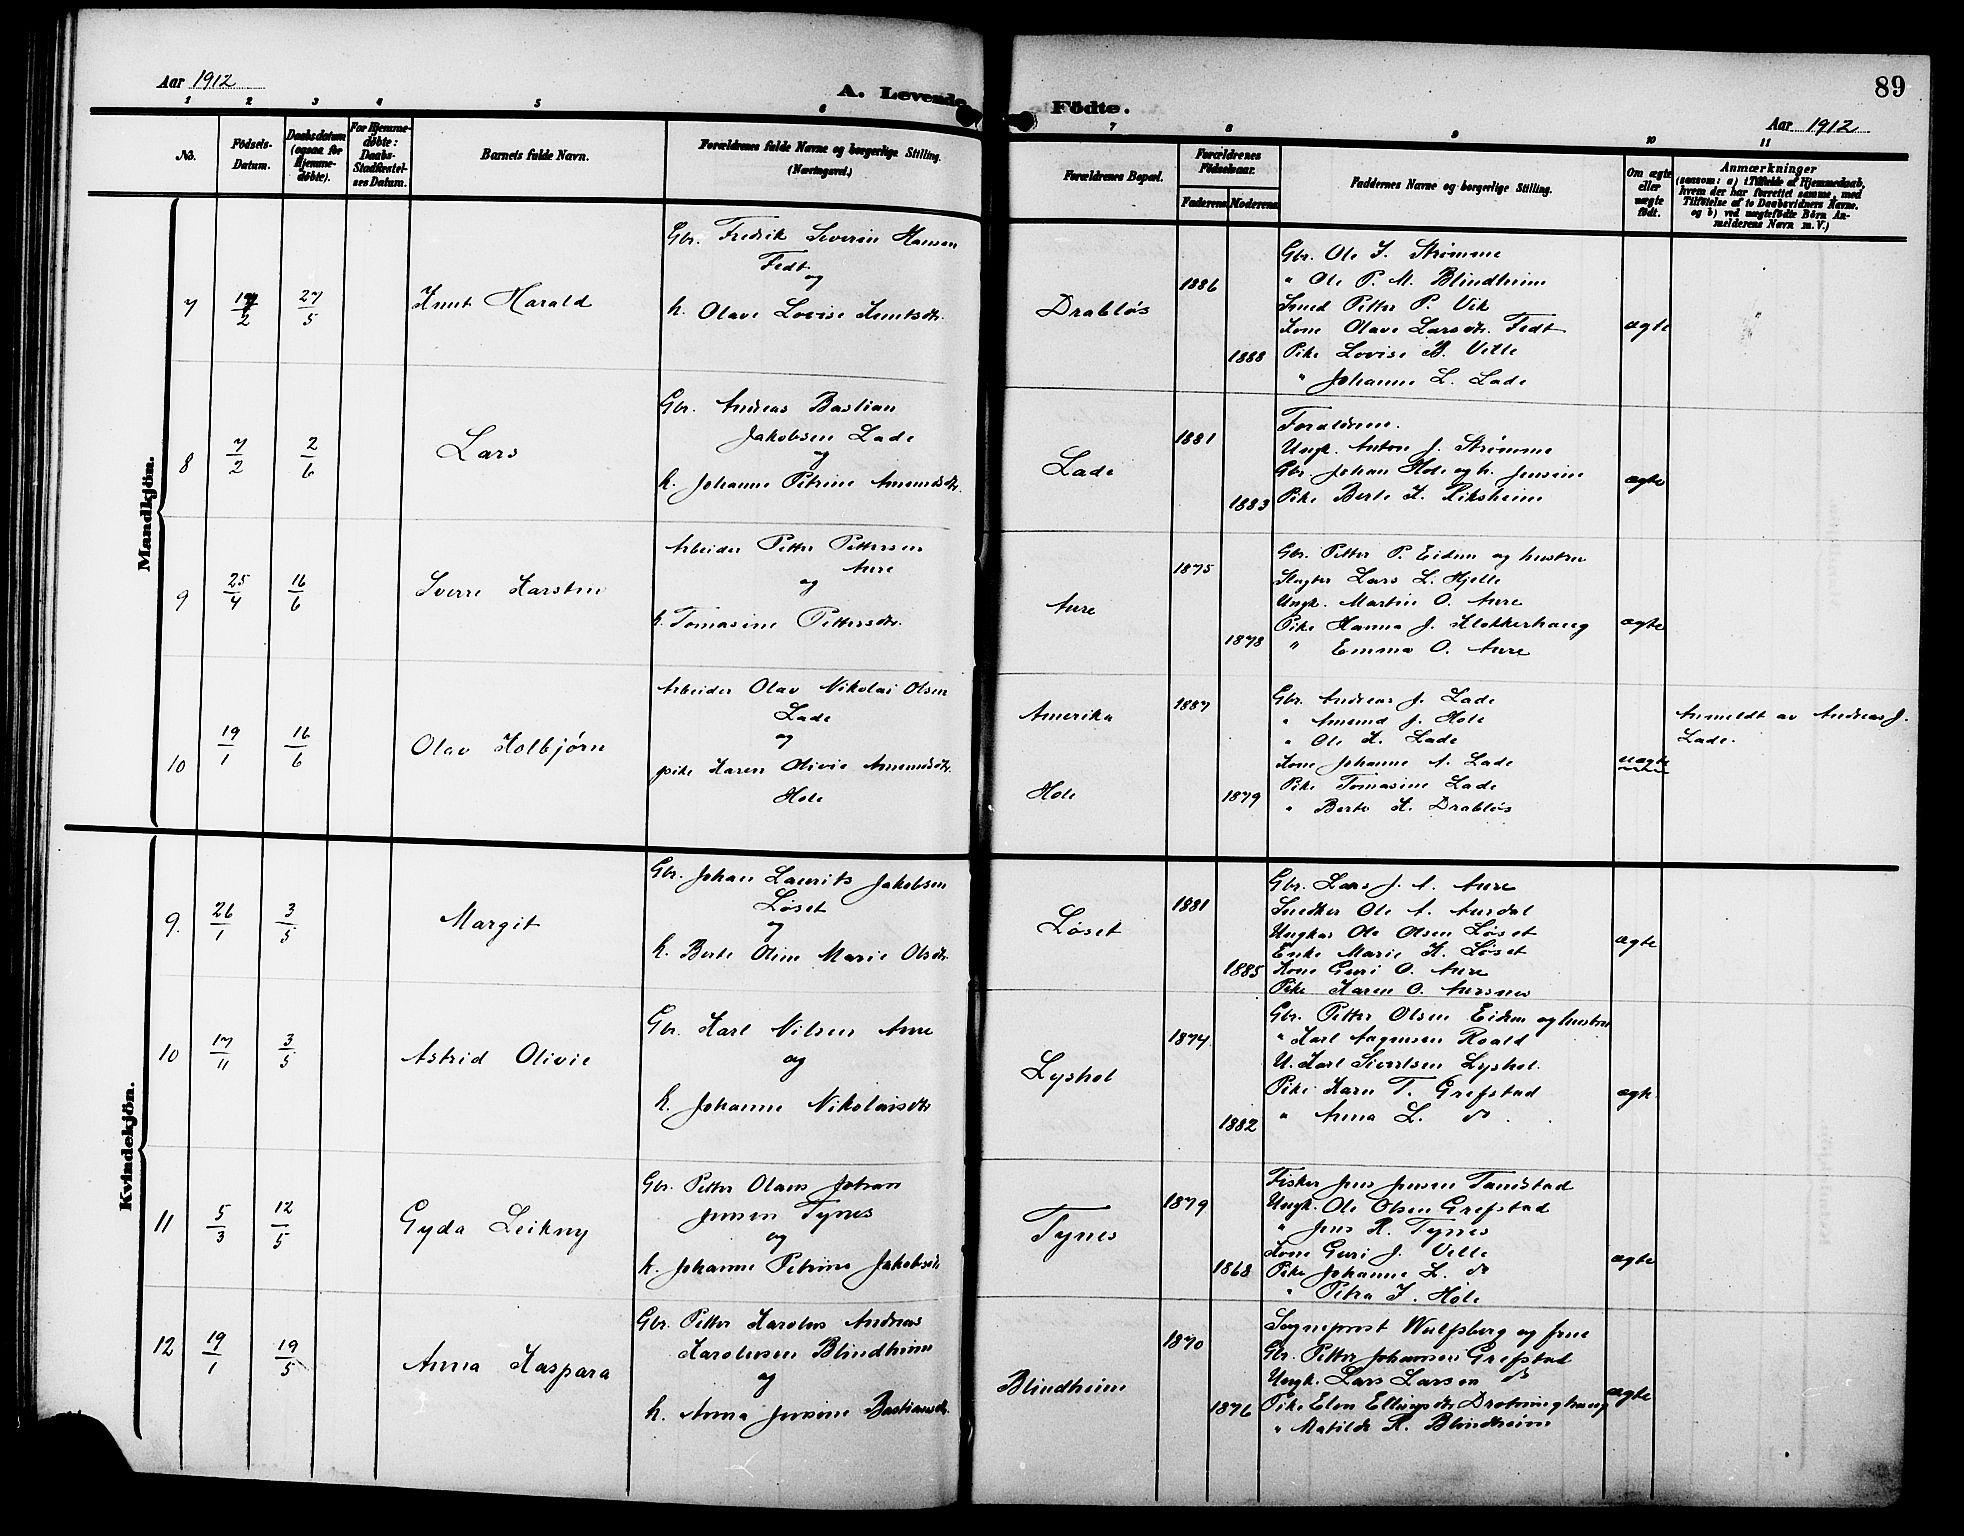 Aar 1912
A. Levende Födte.
89
Aar 1912
1 2 3 4 5 6 7 8 9 10 11
No.
Födsels-
Datum.
Daabsdatum
(ogsaa for
Hjemme-
döbte).
For Hjemme-
döbte:
Daabs-
Stadfæstel-
ses Datum.
Barnets fulde Navn.
Forældrenes fulde Navne og borgerlige Stilling.
(Næringsvei.)
Forældrenes Bopæl.
Forældrenes
Födselsaar.
Faderens Moderens
Faddernes Navne og borgerlige Stilling.
Om ægte
eller
uægte
födt.
Anmærkninger
(saasom: a) i Tilfælde af Hjemmedaab,
hvem der har forrettet samme, med
Tilföielse af to Daabsvidners Navne.
og b) ved uægtefödte Börn An-
melderens Navn m. V.)
Mandkjön.
7
2
27/5
Knut Harald
Gbr. Fredrik Severin Hansen
Fedt
og
h. Olave Lovise Knutsdtr.
Drabløs
1886
1888
Gbr. Ole I. Strømme
" Ole P. M. Blindheim
Smed Petter P. Vik
Kone Olave Larsdtr. Fedt
Pike Lovise B. Velle
" Johanne L. Lade
ægte
8
7/2
2/6
Lars
Gbr. Andreas Bastian
Jakobsen Lade
og
h. Johanne Petrine Amundsdtr.
Lade
1881
1883
Forældrene.
Ungk. Anton J. Strømme
Gbr. Johan Hole og h. Jensine
Pike Berte K. Riksheim
ægte
9
25/4
16/6
Sverre Karsten
Arbeider Petter Pettersen
Aure
og
h. Tomasine Pettersdtr.
Aure
1875
1878
Gbr. Petter P. Eidem og hustru
Slagter Lars L. Hjelle
Ungk. Martin O. Aure
Pike Hanna J. Klokkerhaug
" Emma O. Aure
ægte
10
19/1
16/6
Olav Kolbjørn
Arbeider Olav Nikolai Olsen
Lade
og
pike Karen Olivie Amundsdtr.
Hole
Amerika
Hole
1887
1879
Gbr. Andreas J. Lade
" Amund J. Hole
" Ole K. Lade
Kone Johanne A. Lade
Pike Tomasine Lade
" Berte K. Drabløs
uægte
Anmeldt av Andreas J.
Lade.
Kvindekjön.
9.
26/1
3/5
Margit
Gbr. Johan Laurits Jakobsen
Løset
og
h. Berte Oline Marie Olsdtr.
Løset
1881
1885
Gbr. Lars J. A. Aure
Snedker Ole A. Aurdal
Ungkar Ole Olsen Løset
Enke Marie K. Løset
Kone Guri O. Aure
Pike Karen O. Aursnes
ægte
10
17/11
3/5
Astrid Olivie
Gbr. Karl Nilsen Aure
og
h. Johanne Nikolaisdtr
Lyshol
1874
1882
Gbr. Petter Olsen Eidem og hustru
" Karl Aagesen Roald
U. Karl Sivertsen Lyshol.
Pike Karn T. Grefstad
" Anna L. do
ægte
11
5/3
12/5
Gyda Leikny
Gbr. Petter Olaus Johan
Jensen Tynes
og
h. Johanne Petrine Jakobsdtr
Tynes
1879
1868
Fisker Jens Jensen Tandstad
Ungk. Ole Olsen Grefstad
" Jens R. Tynes
Kone Guri J. Velle
Pike Johanne L. do
" Petra I. Hole
ægte
12
19/1
19/5
Anna Kaspara
Gbr. Petter Karolus Andreas
Karolusen Blindheim
og
h. Anna Jensine Bastiansdtr.
Blindheim
1870
1876
Sogneprest Wulfsberg og frue
Gbr. Petter Johansen Grefstad
Ungk. Lars Larsen do
Pike Elen Ellingsdtr Drotninghaug
" Matilde R. Blindheim
ægte